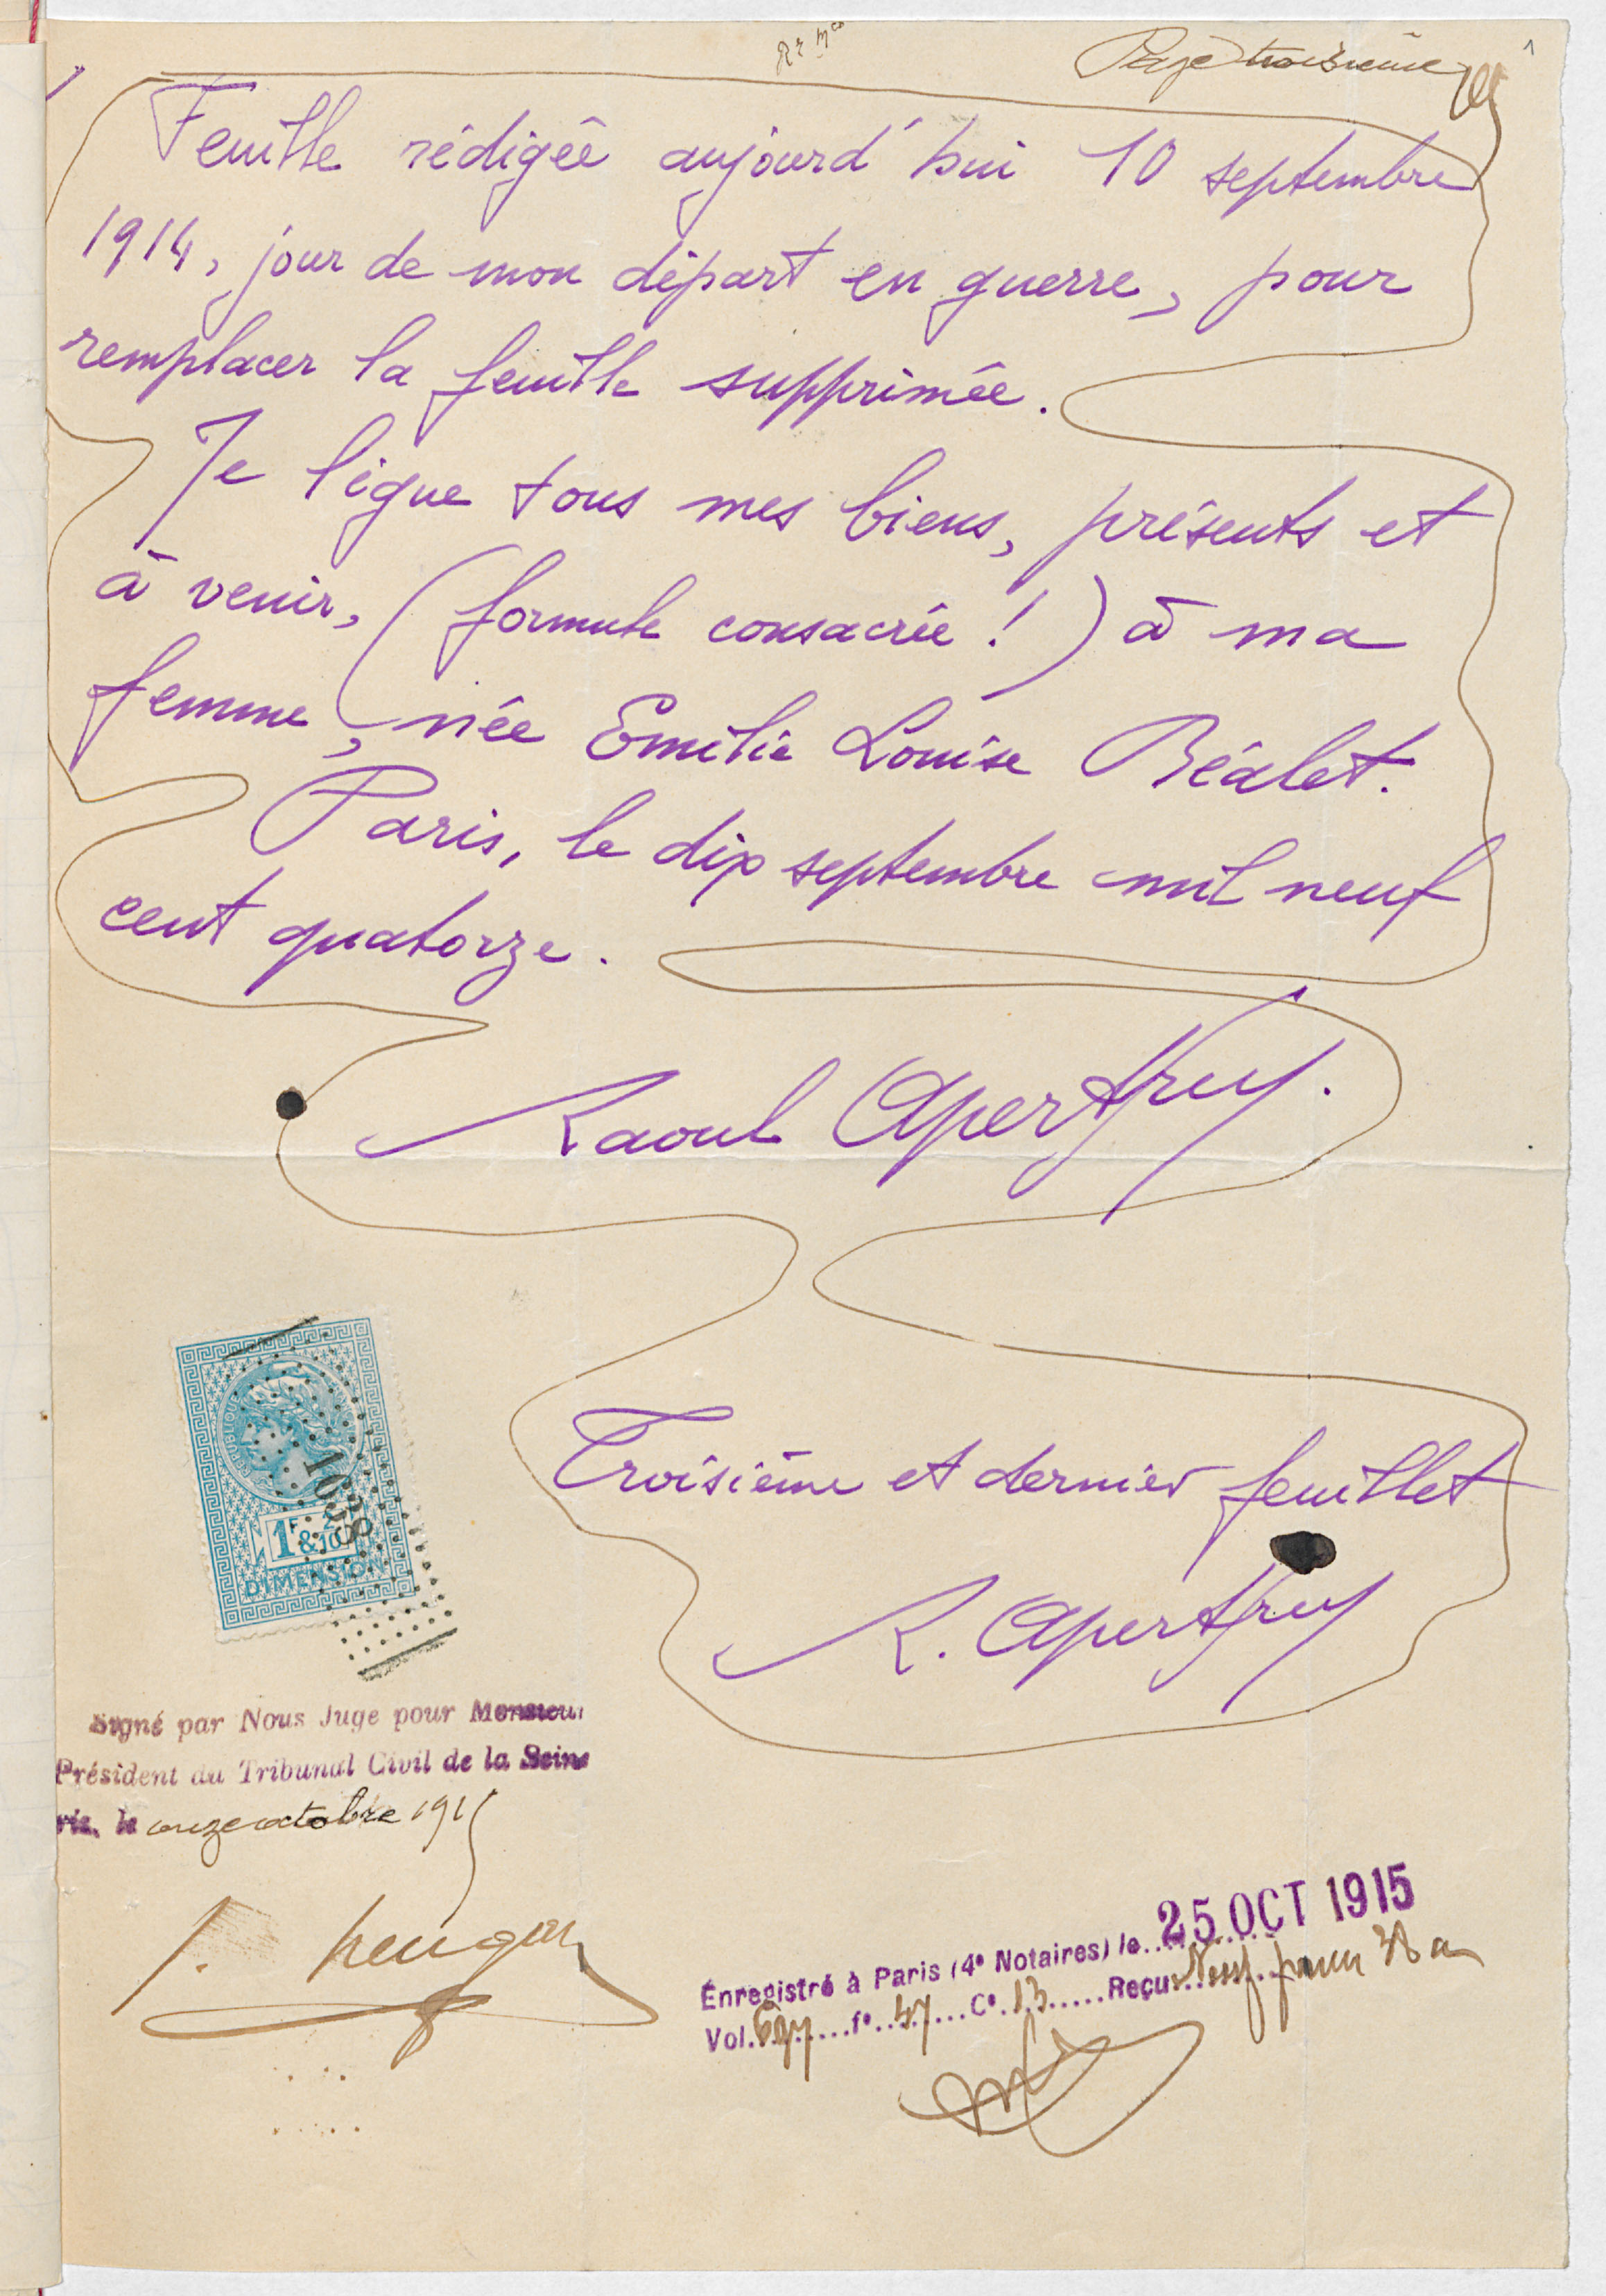 Page troisième
Feuille rédigée aujourd'hui 10 septembre
1914, jour de mon départ en guerre, pour
remplacer la feuille supprimée.
Je lègue tous mes biens, présents et
à venir, (formule consacrée !) à ma
femme, née Emilie Louise Béalet.
Paris, le dix septembre mil neuf
cent quatorze.
Raoul Apertfrey.
REPUBLIQUE
1038
1F &
DIMENSION
Troisième et dernier feuillet
R. Apertfrey
Signé par Nous Juge pour Monsieur
Président du Tribunal Civil de la Seine
ris, le onze octobre 1915
Enregistré à Paris (4e Notaires) le 25 OCT 1915
Vol. fo. 47 Ce. 13 Reçu Neuf francs 38 c